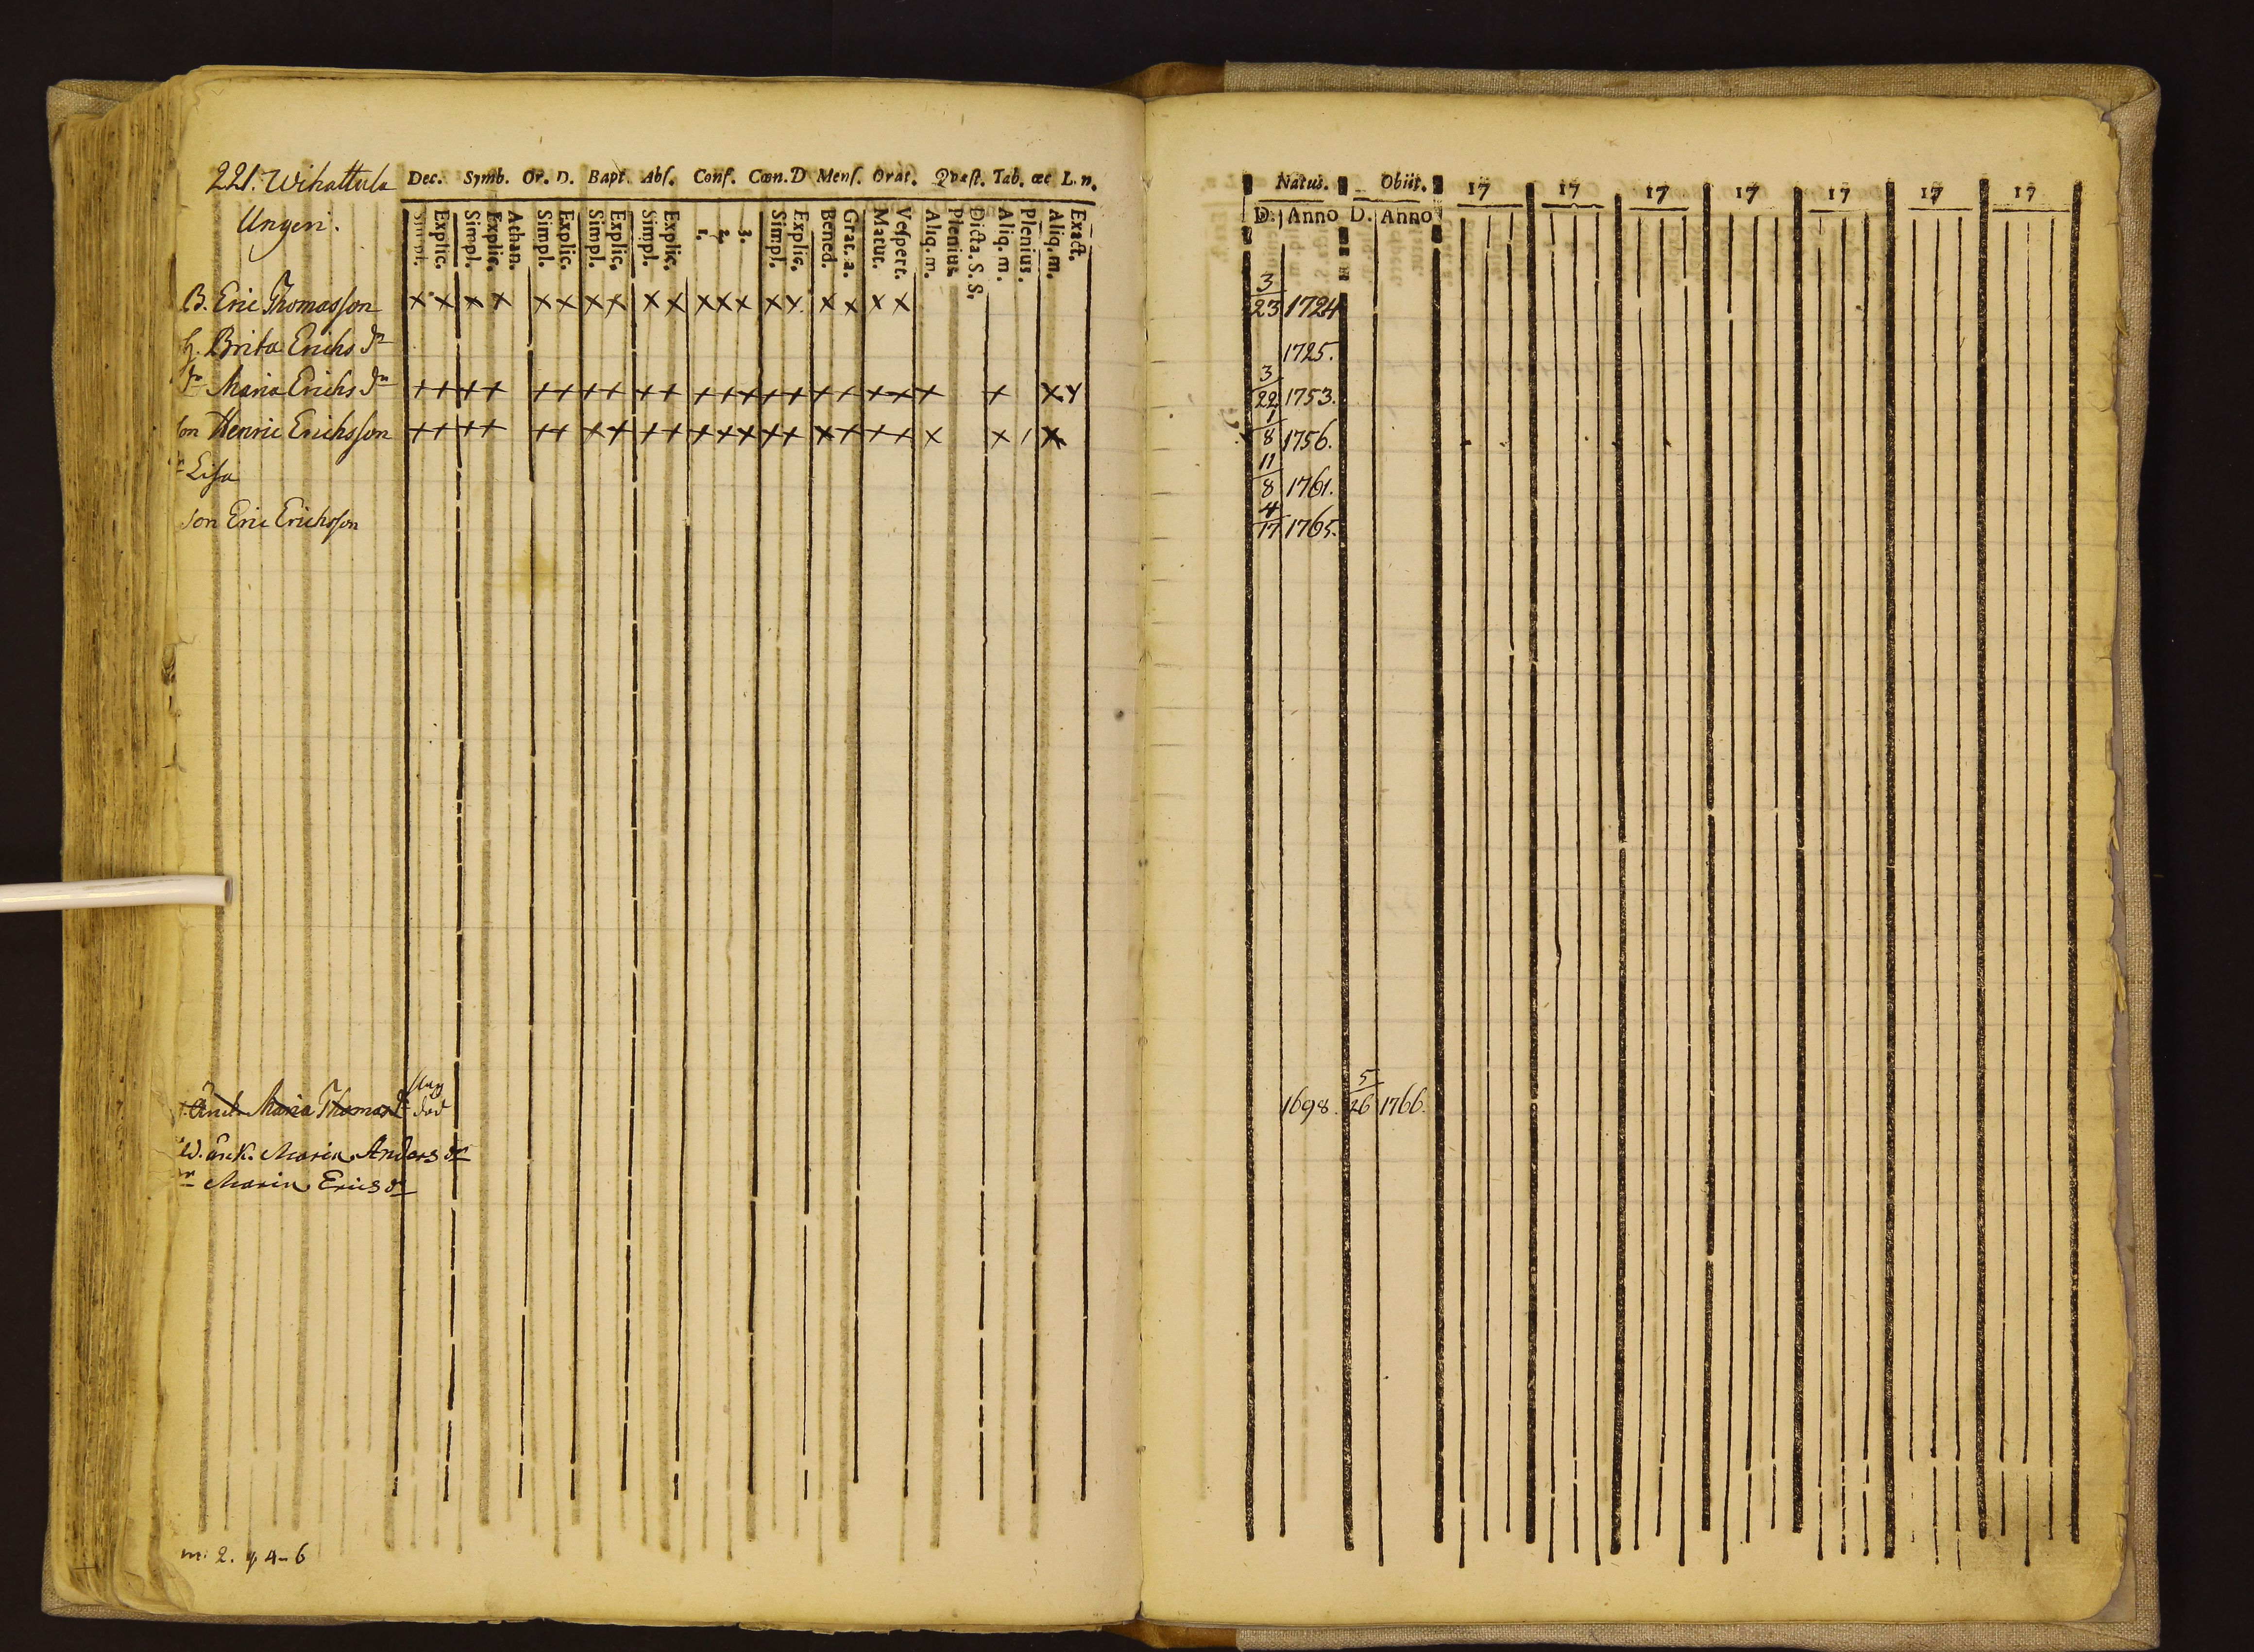 221. Wihattula Dec. Symb. Or. D. Bapt. Abſ. Conf. Cœn. D Menſ. Orat. Qvæſt. Tab. œc L. n.
Ungeri. Simpl. Explic. Simpl. Explic. Athan. Simpl. Explic. Simpl. Explic. Simpl. Explic. 1. 2. 3. Simpl. Explic. Bened. Grat. a. Matut. Veſpert. Aliq. m. Plenius. Dicta. S. S. Aliq. m. Plenius. Aliq. m. Exact.
B. Eric Thomasſon x x x x x x x x x x x x x x x x x x x
h. Brita Erichs dr
dr Maria Erichs dr + + + + + + + + + + + + + + + + + + + + + x x
ſon Henric Erichsſon + + + + + + x + + + + x x + + x + + + x x / x
Liſa
ſon Eric Erichsſon
Maria Thomas dr död
W. Maria Anders dr
Maria Erics dr
m. 2. q 4-6
Natus. Obiit. 17 17 17 17 17 17 17
D. Anno D. Anno
3/23 1724
1725.
3/22 1753.
1/8 1756.
11/8 1761.
4/17 1765.
1698. 5/26 1766.